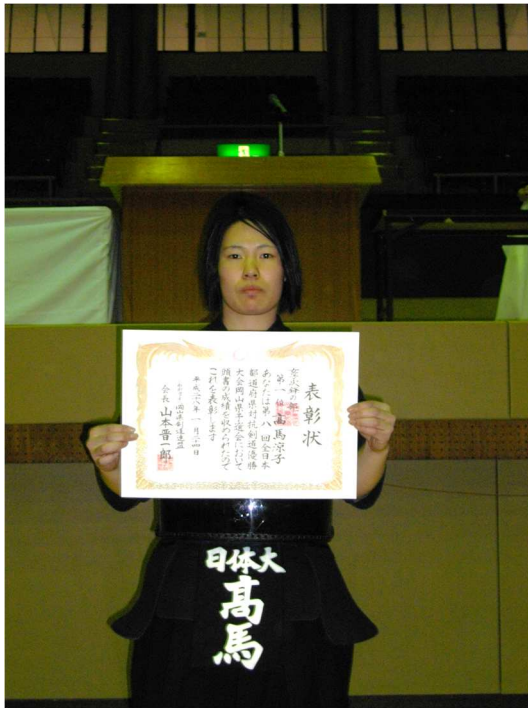 表彰状
女子次鋒の部
第一位 高馬涼子
あなたは第八回全日本
都道府県対抗剣道優勝
大会岡山県予選会において
頭書の成績を収められたので
これを表彰します
平成二八年一月二四日
岡山県剣道連盟
会長 山本晋一郎
日体大
高馬